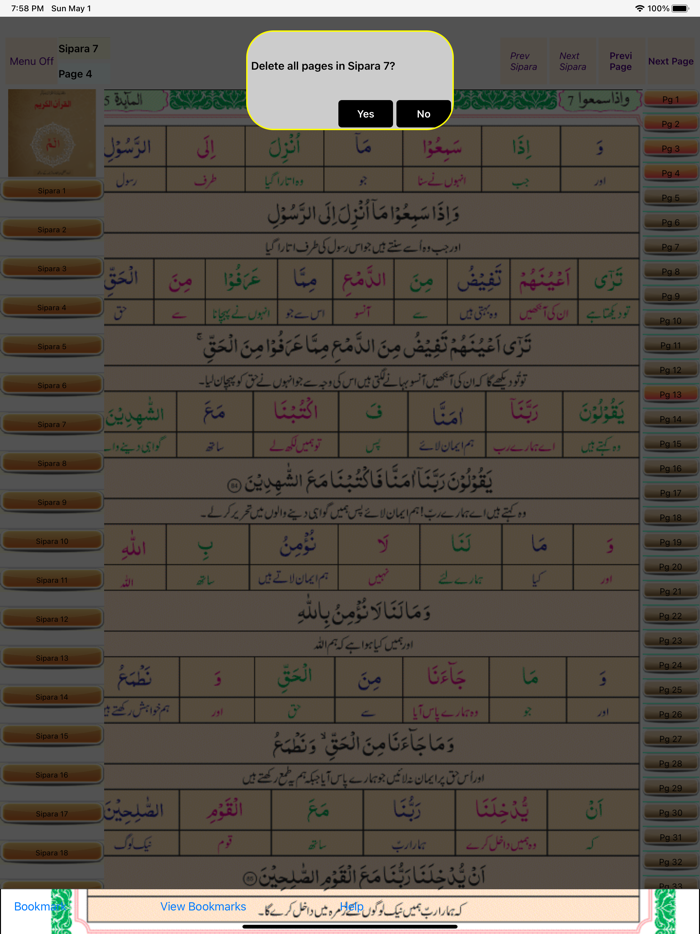 7:58 PM Sun May 1
100%
Menu Off
Sipara 7
Page 4
Delete all pages in Sipara 7?
Yes
No
Prev Sipara
Next Sipara
Previ Page
Next Page
القرآن الكريم
الٓمّٓ
المآئدة 5
واذاسمعوا 7
وَ اِذَا سَمِعُوْا مَآ اُنْزِلَ اِلَى الرَّسُوْلِ
اور جب انہوں نے سنا جو وہ اتارا گیا طرف رسول
وَاِذَا سَمِعُوْا مَآ اُنْزِلَ اِلَى الرَّسُوْلِ
اور جب وہ اُسے سنتے ہیں جو اس رسول کی طرف اتارا گیا
تَرٰٓى اَعْيُنَهُمْ تَفِيْضُ مِنَ الدَّمْعِ مِمَّا عَرَفُوْا مِنَ الْحَقِّ
تو دیکھتا ہے ان کی آنکھیں وہ بہتی ہیں سے آنسو اس سے جو انہوں نے پہچانا سے حق
تَرٰٓى اَعْيُنَهُمْ تَفِيْضُ مِنَ الدَّمْعِ مِمَّا عَرَفُوْا مِنَ الْحَقِّ ۚ
تو تُو دیکھے گا کہ ان کی آنکھیں آنسو بہانے لگتی ہیں اس کی وجہ سے جو انہوں نے حق کو پہچان لیا۔
يَقُوْلُوْنَ رَبَّنَآ اٰمَنَّا فَ اكْتُبْنَا مَعَ الشّٰهِدِيْنَ
وہ کہتے ہیں اے ہمارے رب ہم ایمان لائے پس تو ہمیں لکھ لے ساتھ گواہی دینے والے
يَقُوْلُوْنَ رَبَّنَآ اٰمَنَّا فَاكْتُبْنَا مَعَ الشّٰهِدِيْنَ
وہ کہتے ہیں اے ہمارے ربّ! ہم ایمان لائے پس ہمیں گواہی دینے والوں میں تحریر کر لے۔
وَ مَا لَنَا لَا نُؤْمِنُ بِ اللّٰهِ
اور کیا ہمارے لئے نہیں ہم ایمان لاتے ہیں ساتھ اللہ
وَمَا لَنَا لَا نُؤْمِنُ بِاللّٰهِ
اور ہمیں کیا ہوا ہے کہ ہم اللہ
وَ مَا جَآءَنَا مِنَ الْحَقِّ وَ نَطْمَعُ
اور جو وہ ہمارے پاس آیا سے حق اور ہم خواہش رکھتے ہیں
وَمَا جَآءَنَا مِنَ الْحَقِّ ۙ وَنَطْمَعُ
اور اُس حق پر ایمان نہ لائیں جو ہمارے پاس آیا جبکہ ہم یہ طمع رکھتے ہیں
اَنْ يُّدْخِلَنَا رَبُّنَا مَعَ الْقَوْمِ الصّٰلِحِيْنَ
کہ وہ ہمیں داخل کرے ہمارا ربّ ساتھ قوم نیک لوگ
اَنْ يُّدْخِلَنَا رَبُّنَا مَعَ الْقَوْمِ الصّٰلِحِيْنَ
کہ ہمارا ربّ ہمیں نیک لوگوں کے زمرہ میں داخل کرے گا۔
Sipara 1
Sipara 2
Sipara 3
Sipara 4
Sipara 5
Sipara 6
Sipara 7
Sipara 8
Sipara 9
Sipara 10
Sipara 11
Sipara 12
Sipara 13
Sipara 14
Sipara 15
Sipara 16
Sipara 17
Sipara 18
Pg 1
Pg 2
Pg 3
Pg 4
Pg 5
Pg 6
Pg 7
Pg 8
Pg 9
Pg 10
Pg 11
Pg 12
Pg 13
Pg 14
Pg 15
Pg 16
Pg 17
Pg 18
Pg 19
Pg 20
Pg 21
Pg 22
Pg 23
Pg 24
Pg 25
Pg 26
Pg 27
Pg 28
Pg 29
Pg 30
Pg 31
Pg 32
Pg 33
Bookmark
View Bookmarks
Help